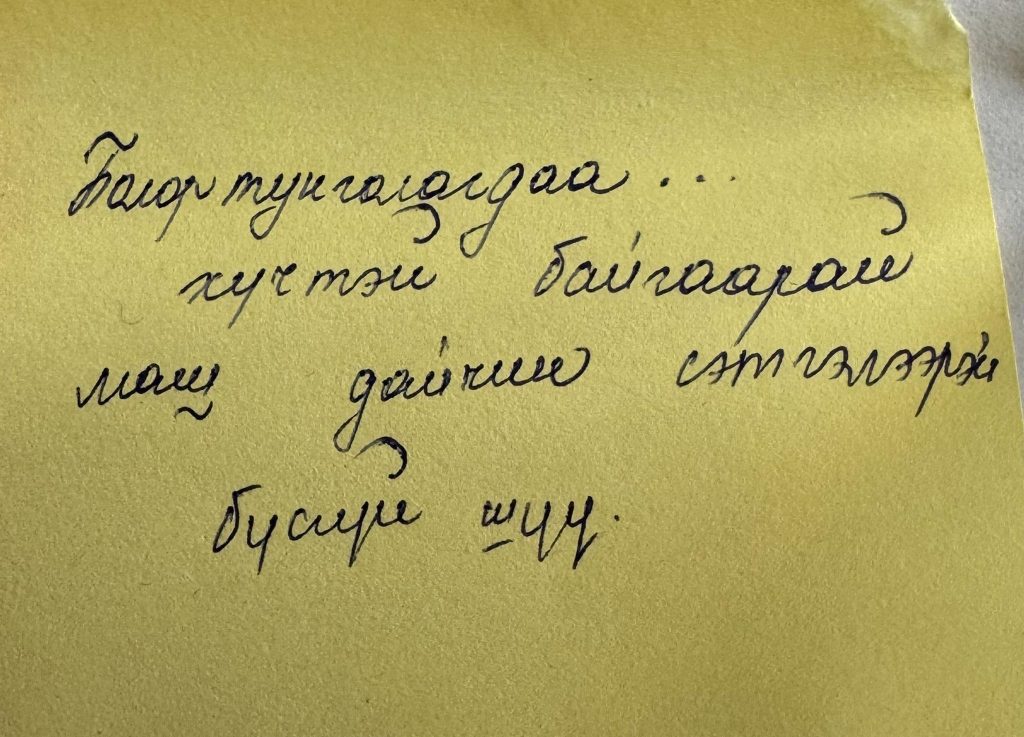 Болор тунгалагдаа ...
хүчтэй байгаарай
маш дайчин сэтгэлээрэй
бүсгүй шүү.